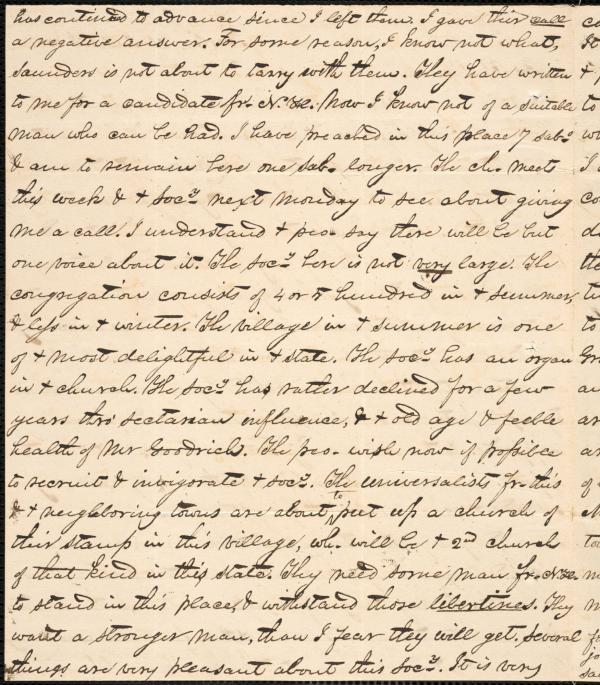 has continued to advance since I left them. I gave this call
a negative answer. For some reason, I know not what,
Saunders is not about to tarry with them. They have written
to me for a candidate fr. N. H. Now I know not of a suitable
man who can be had. I have preached in this place 7 sabs
& am to remain here one sab. longer. The ch. meet
this week & + socy next monday to see about giving
me a call. I understand + peo. say there will be but
one voice about it. The socy here is not very large. The
congregation consists of 4 or 5 hundred in + summer,
& less in + winter. The village in + summer is one
of + most delightful in + state. The socy has an organ
in + church. The socy has rather declined for a few
years thro' sectarian influence, & + old age & feeble
health of Mr Goodrich. The peo. wish now if possible
to recruit & invigorate + socy. The universalists fr. this
& + neighboring towns are about to put up a church of
their stamp in this village, wh. will be + 2nd church
of that kind in this state. They need some man fr.
to stand in this place, & withstand those libertines. They
want a stronger man, than I fear they will get. Several
things are very pleasant about this socy. It is very